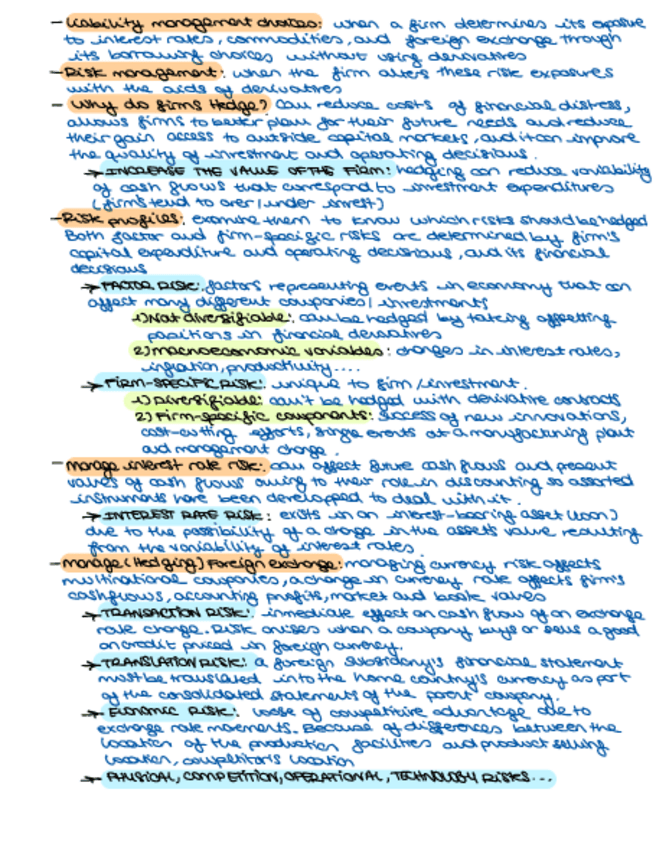 - Liability management choices: when a firm determines its exposure
to interest rates, commodities, and foreign exchange through
its borrowing choices without using derivatives
- Risk management: when the firm alters these risk exposures
with the aids of derivatives
- Why do firms Hedge? Can reduce costs of financial distress,
allows firms to better plan for their future needs and reduce
their gain access to outside capital markets, and it can improve
the quality of investment and operating decisions.
→ INCREASE THE VALUE OF THE FIRM: hedging can reduce variability
of cash flows that correspond to investment expenditures
(firms tend to over/under invest)
- Risk profiles: examine them to know which risks should be hedged
Both factor and firm-specific risks are determined by firm's
capital expenditure and operating decisions, and its financial
decisions
→ FACTOR RISK: factors representing events in economy that can
affect many different companies/investments
1) Not diversifiable: can be hedged by taking offsetting
positions in financial derivatives
2) Macroeconomic variables: changes in interest rates,
inflation, productivity....
→ FIRM-SPECIFIC RISK: unique to firm/investment.
1) Diversifiable: can't be hedged with derivative contracts
2) Firm-specific components: success of new innovations,
cost-cutting efforts, single events at a manufacturing plant
and management change.
- Manage interest rate risk: can affect future cash flows and present
values of cash flows owing to their role in discounting so assorted
instruments have been developped to deal with it.
→ INTEREST RATE RISK: exists in an interest-bearing asset (loan)
due to the possibility of a change in the assets value resulting
from the variability of interest rates.
- Manage (Hedging) Foreign exchange: managing currency risk affects
multinational companies, a change in currency rate affects firm's
cashflows, accounting profits, market and book values
→ TRANSACTION RISK: inmediate effect on cash flow of an exchange
rate change. Risk arises when a company buys or sells a good
on credit priced in foreign currency.
→ TRANSLATION RISK: a foreign subsidiary's financial statement
must be translated into the home country's currency as part
of the consolidated statements of the parent company.
→ Economic RISK: loose of competitive advantage due to
exchange rate movements. Because of differences between the
location of the production facilities and product selling
location, competitor's location
→ PHYSICAL, COMPETITION, OPERATIONAL, TECHNOLOGY RISKS...